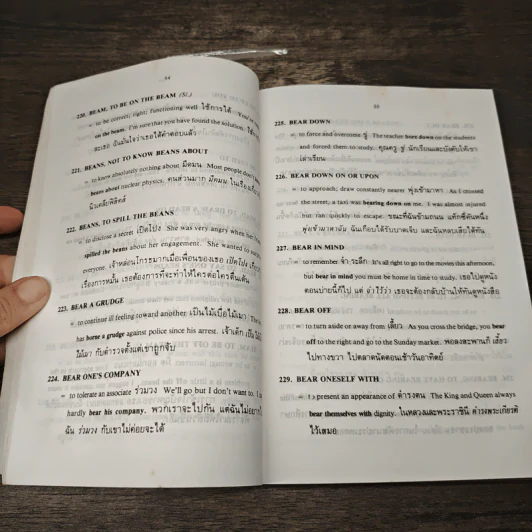 54
220. BEAM, TO BE ON THE BEAM (Sl.)
= to be correct; right; functioning well ใช้การได้
on the beam. I'm sure that you have found the solution. ใช้ได้
ละเธอ ฉันมั่นใจว่าเธอได้คำตอบแล้ว
221. BEANS, NOT TO KNOW BEANS ABOUT
= to know absolutely nothing about มืดมน. Most people don't
beans about nuclear physics. คนส่วนมาก มืดมน ในเรื่อง
นิวเคลียร์ฟิสิกส์
222. BEANS, TO SPILL THE BEANS
= to disclose a secret เปิดโปง She was very angry when
spilled the beans about her engagement. She wanted to
everyone. เจ้าหล่อนโกรธมากเมื่อเพื่อนของเธอ เปิดโปง
เรื่องการหมั้น เธอต้องการที่จะทำให้ใครต่อใครตื่นเต้น
223. BEAR A GRUDGE
= to continue ill feeling toward another เป็นไม้เบื่อไม้เมา
has borne a grudge against police since his arrest. เจ้าเด็ก
ไม้เมา กับตำรวจตั้งแต่เขาถูกจับ
224. BEAR ONE'S COMPANY
= to tolerate an associate ร่วมวง We'll go but I don't want to. I
hardly bear his company. พวกเราจะไปกัน แต่ฉันไม่อยาก
ฉัน ร่วมวง กับเขาไม่ค่อยจะได้
55
225. BEAR DOWN
= to force and overcome ขู่ The teacher bore down on the students
and forced them to study. คุณครู ขู่ นักเรียนและบังคับให้เขา
เล่าเรียน
226. BEAR DOWN ON OR UPON
= to approach; draw constantly nearer พุ่งเข้ามาหา As I crossed
the street, a taxi was bearing down on me. I was almost injured
but ran quickly to escape. ขณะที่ฉันข้ามถนน แท็กซี่คันหนึ่ง
พุ่งเข้ามาหา ฉัน ฉันเกือบได้รับบาดเจ็บ และฉันหลบเลี่ยงได้ทัน
227. BEAR IN MIND
= to remember จำ ระลึก It's all right to go to the movies this afternoon,
but bear in mind you must be home in time to study. เธอไปดูหนัง
ตอนบ่ายนี้ก็ไป แต่ จำไว้ว่า เธอจะต้องกลับบ้านให้ทันดูหนังสือ
228. BEAR OFF
= to turn aside or away from เลี้ยว As you cross the bridge, you bear
off to the right and go to the Sunday market. พอลงสะพานก็ เลี้ยว
ไปทางขวา ไปตลาดนัดตอนเช้าวันอาทิตย์
229. BEAR ONESELF WITH
= to present an appearance of ดำรงตน The King and Queen always
bear themselves with dignity. ในหลวงและพระราชินี ดำรงพระเกียรติ
ไว้เสมอ